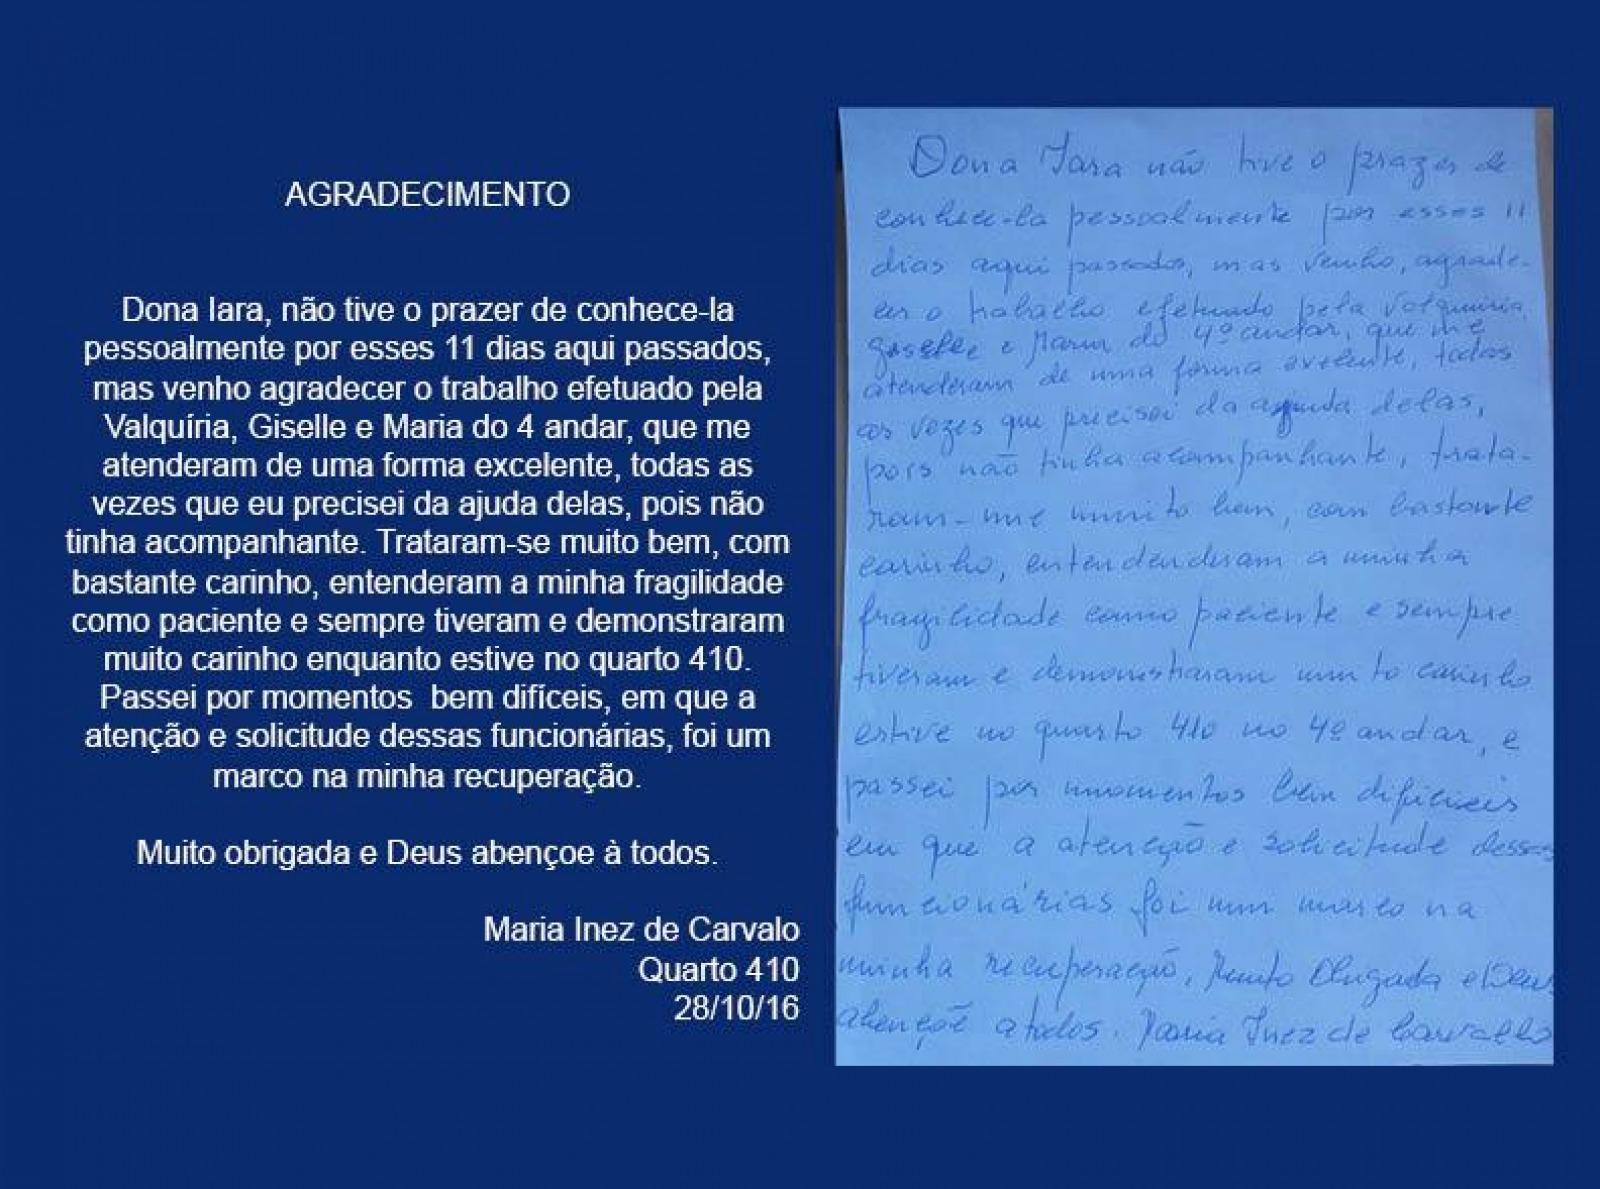 AGRADECIMENTO
Dona Iara, não tive o prazer de conhece-la
pessoalmente por esses 11 dias aqui passados,
mas venho agradecer o trabalho efetuado pela
Valquíria, Giselle e Maria do 4 andar, que me
atenderam de uma forma excelente, todas as
vezes que eu precisei da ajuda delas, pois não
tinha acompanhante. Trataram-se muito bem, com
bastante carinho, entenderam a minha fragilidade
como paciente e sempre tiveram e demonstraram
muito carinho enquanto estive no quarto 410.
Passei por momentos bem difíceis, em que a
atenção e solicitude dessas funcionárias, foi um
marco na minha recuperação.
Muito obrigada e Deus abençoe à todos.
Maria Inez de Carvalo
Quarto 410
28/10/16
Dona Iara não tive o prazer de
conhece-la pessoalmente por esses 11
dias aqui passados, mas venho, agrade-
cer o trabalho efetuado pela Valquiria,
Gisele e Maria do 4º andar, que me
atenderam de uma forma exelente, todas
as vezes que precisei da ajuda delas,
pois não tinha acompanhante, trata-
ram-me muito bem, com bastante
carinho, entendenderam a minha
fragilidade como paciente e sempre
tiveram e demonstraram muito carinho
estive no quarto 410 no 4º andar, e
passei por momentos bem dificieis
em que a atenção e solicitude dessas
funcionárias foi um marco na
minha recuperação, Muito Obrigada e Deus
abençoe a todos. Maria Inez de Carvalho